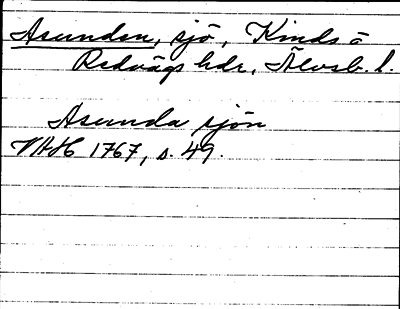 Åsunden, sjö, Kinds o
Redvägs hdr, Älvsb. l.
Åsunda sjön
VAH 1767, s. 49.